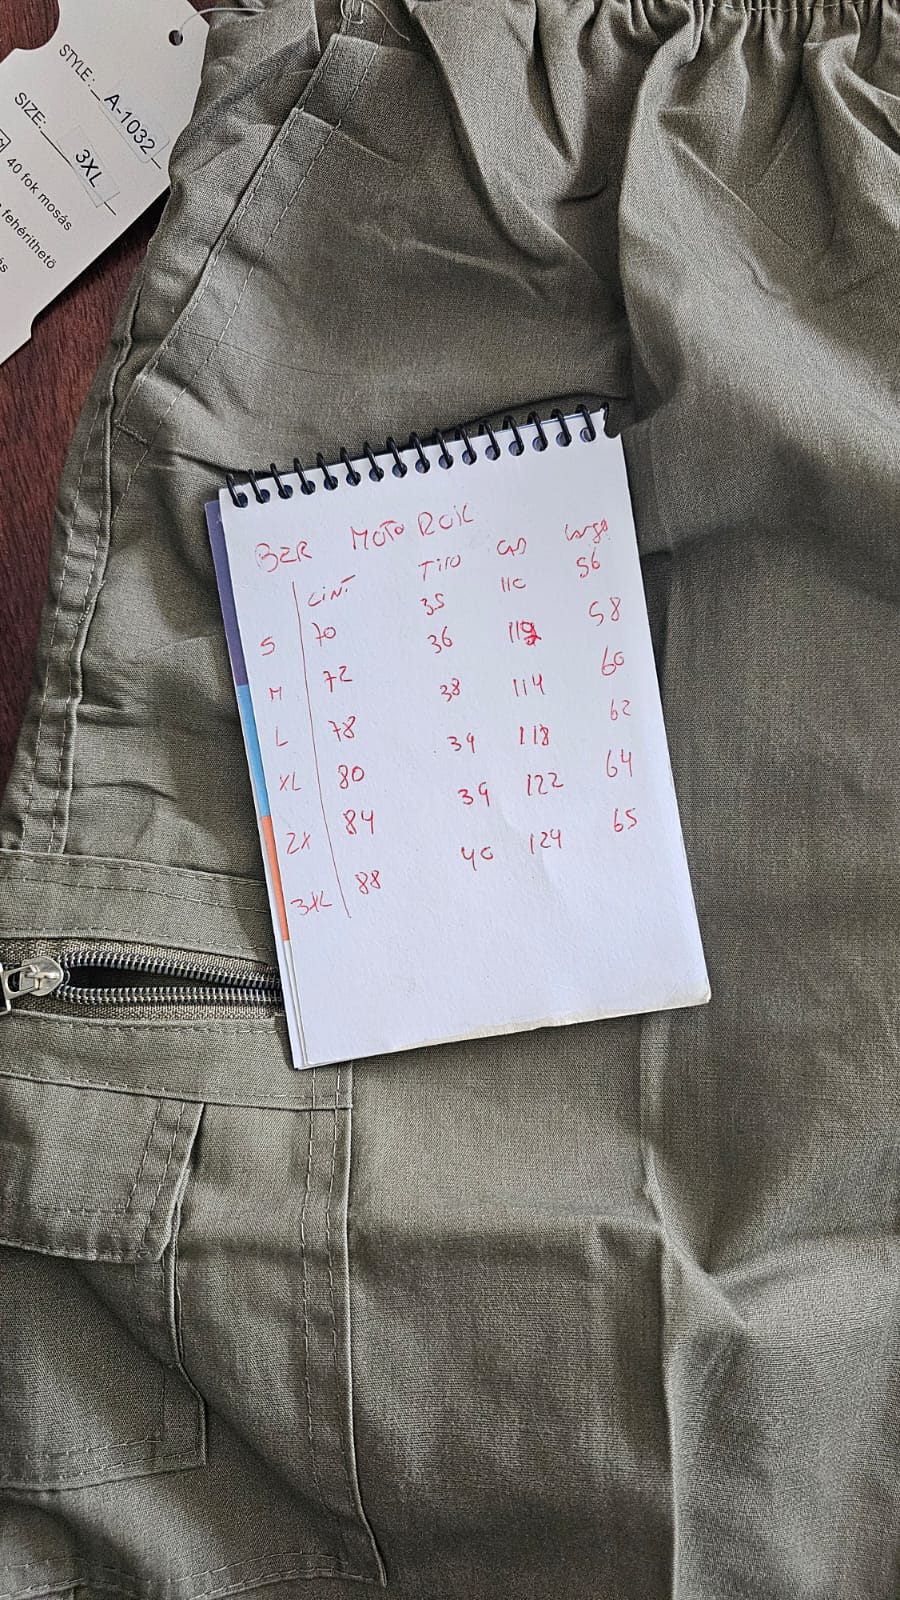 STYLE: A-1032
SIZE: 3XL
40 fok mosás
fehéríthető
ás
BER MOTO ROIL
CINT TIRO CAD Largo
S 70 35 110 56
M 72 36 112 58
L 78 38 114 60
XL 80 39 118 62
2X 84 39 122 64
3XL 88 40 124 65